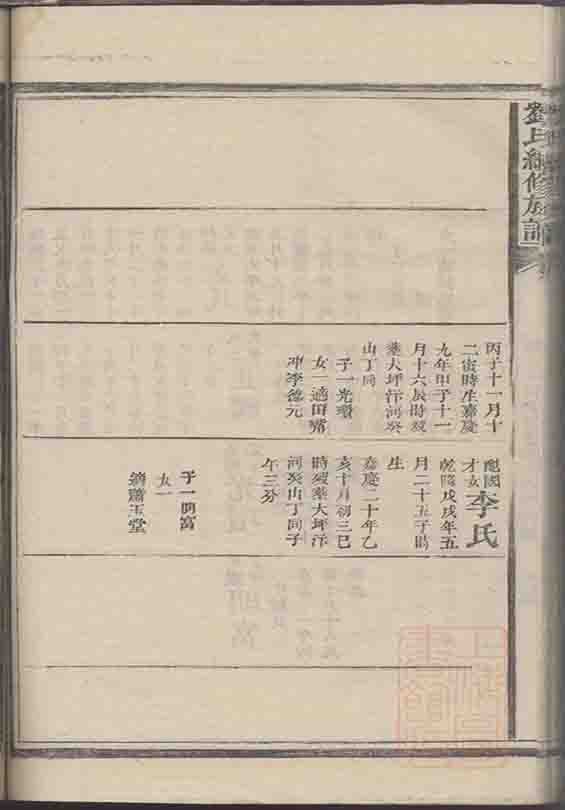 劉氏續修族譜
丙子十一月十
二寅時生嘉慶
九年甲子十一
月十六辰時歿
葬大坪汙河癸
山丁向
子一光璟
女一適田
冲李德元
配國
才女
李氏
乾隆戊戌年五
月二十五子時
生
嘉慶二十年乙
亥十月初三巳
時歿葬大坪汙
河癸山丁向子
午三分
子一明富
女一
適蕭玉堂